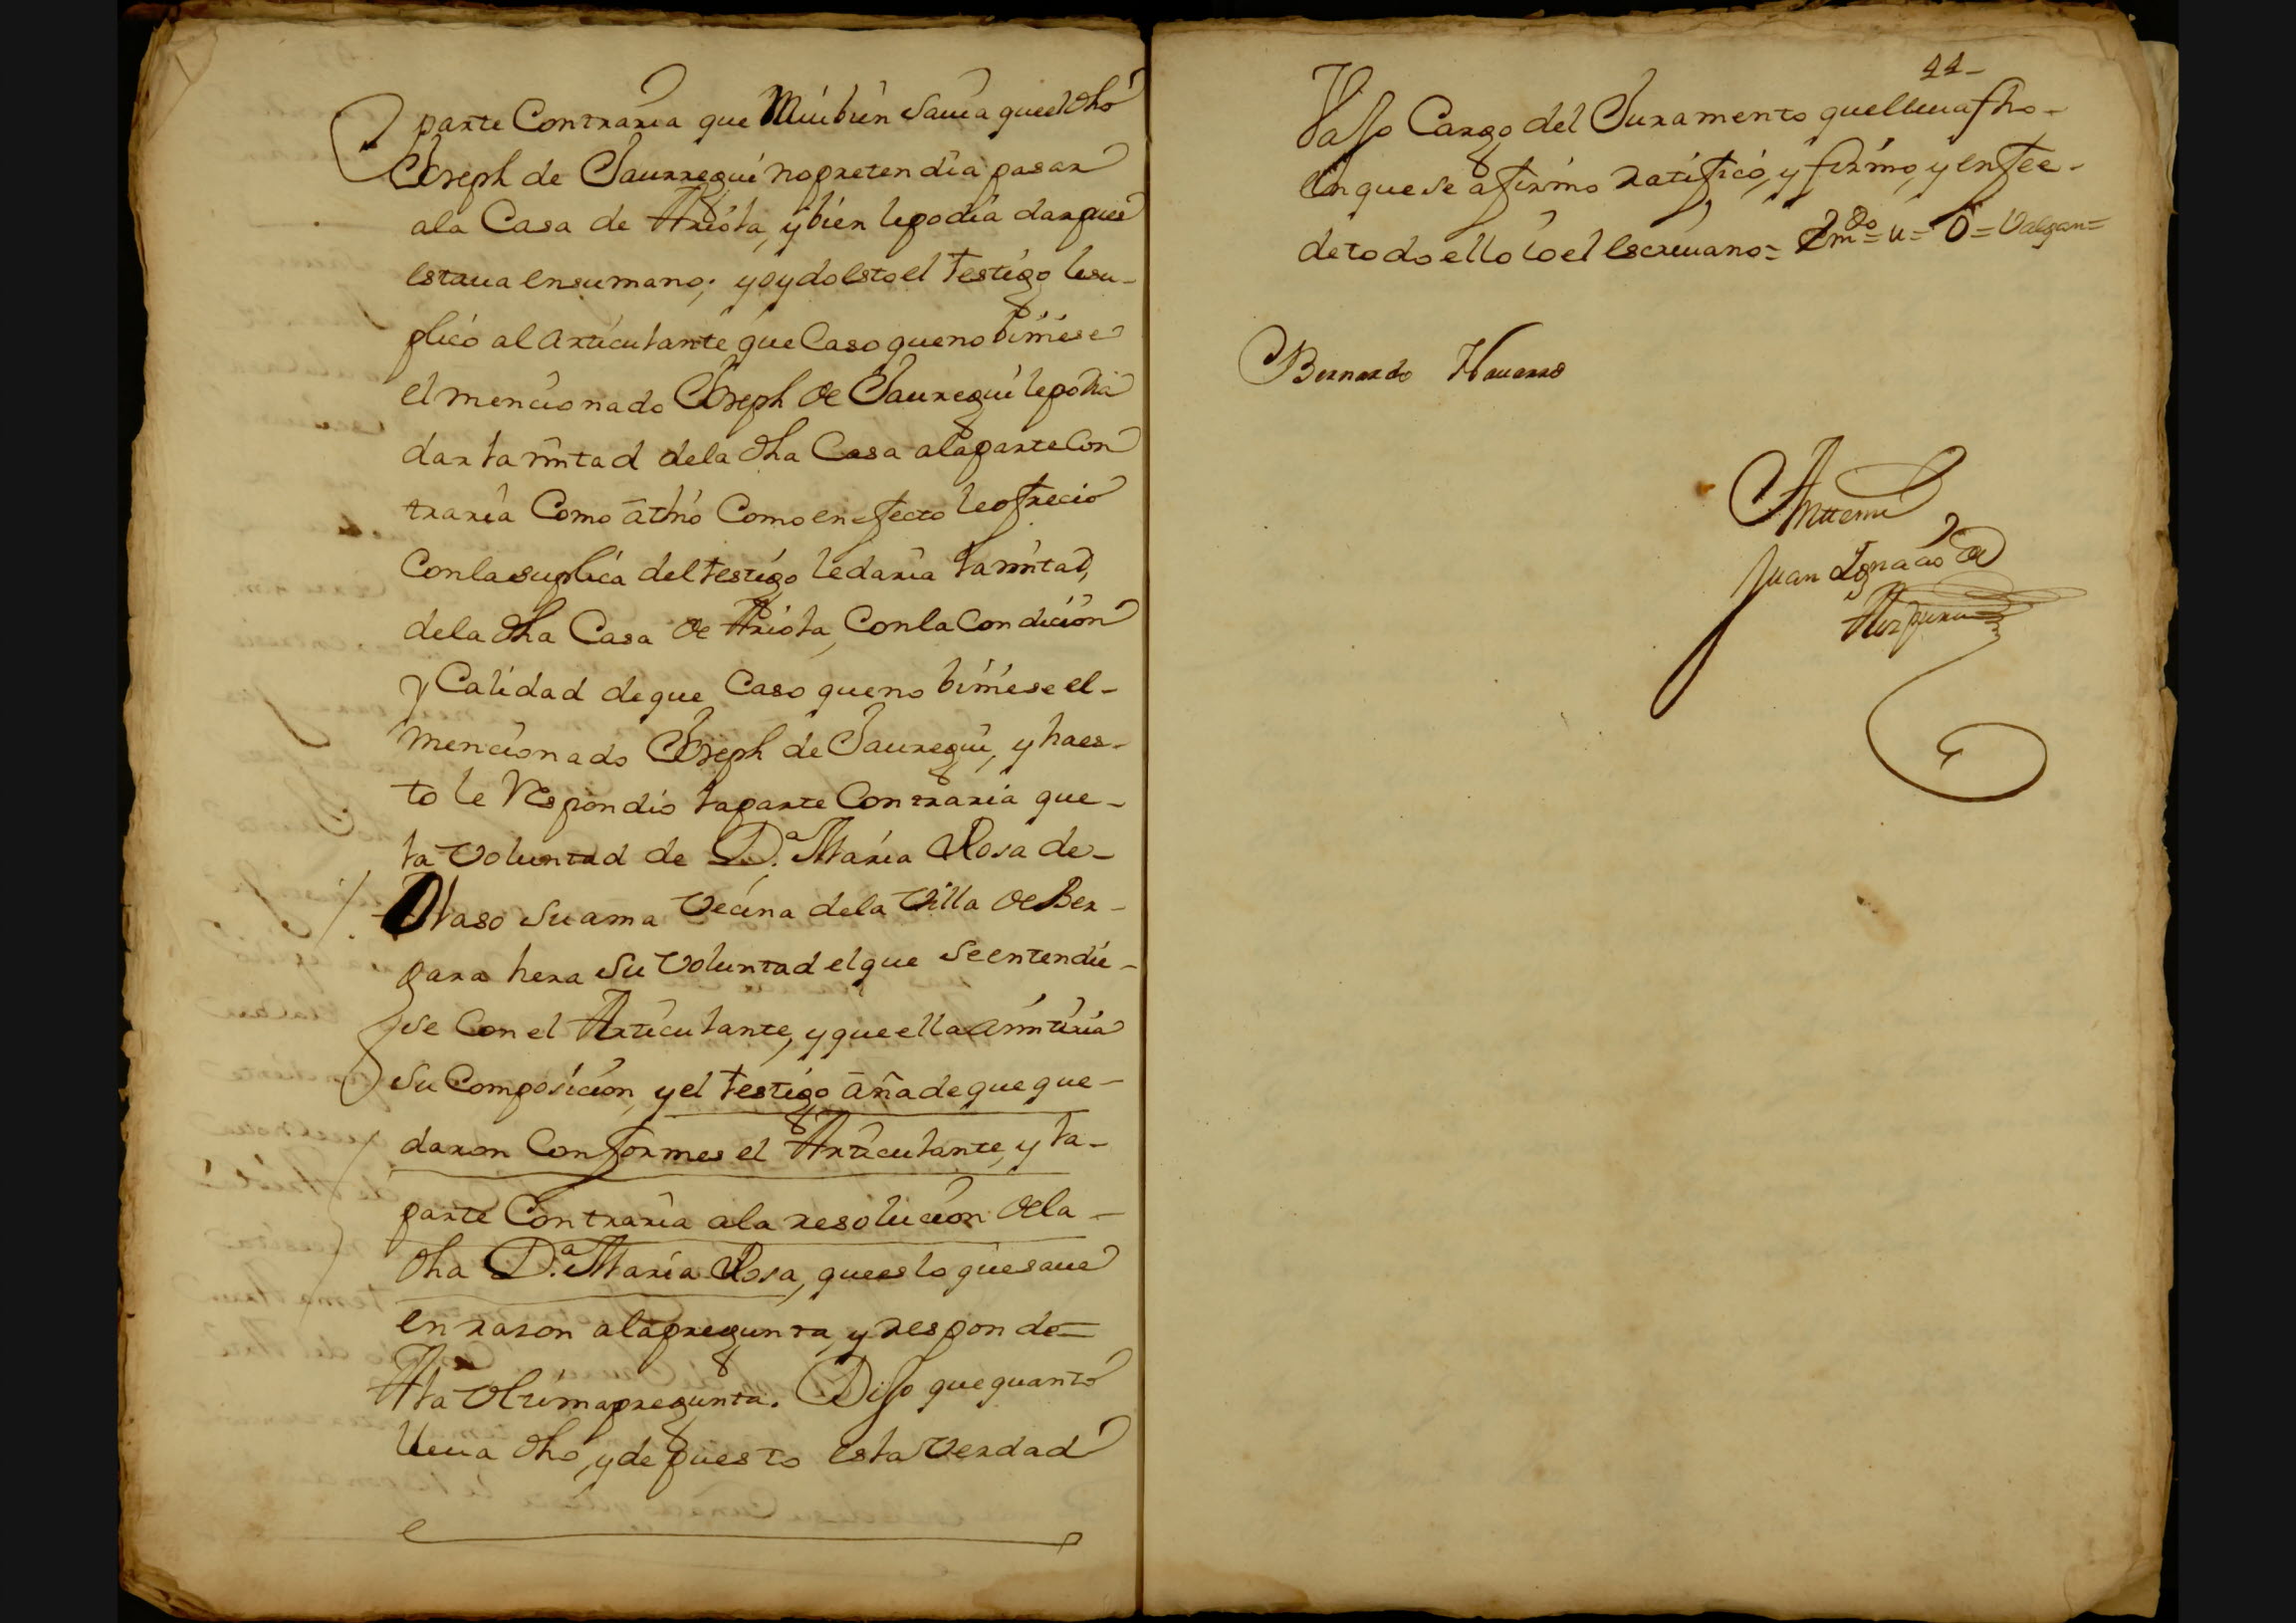 parte Contraria que Mui bien Savia que el dho
Joseph de Jaurregui no pretendia pasar
a la Casa de Ariola, y bien le podia dar pues
estava en su mano; y oydo esto el testigo le su-
plicó al articulante que Caso que no biniese
el mencionado Joseph de Jauregui le podia
dar la mitad de la dha Casa a la parte Con
traria Como a thio Como en efecto le ofrecio
Con la suplica del testigo le daria la mitad,
de la dha Casa de Ariola, Con la Condicion
y Calidad de que Caso que no biniese el-
mencionado Joseph de Jauregui, y ha es-
to le Respondio la parte Contraria que-
la Voluntad de D.ª Maria Rosa de-
Olaso Su ama Vecina de la Villa de Ber-
gara hera Su Voluntad el que Se entendie-
se Con el Articulante, y que ella amitiria
Su Composicion, y el testigo añade que que-
daron Conformes el Articulante, y la-
parte Contraria a la resolucion de la-
dha D.ª Maria Rosa, que es lo que save
en razon a la pregunta, y responde=
A la Vltima pregunta. Dijo que quanto
lleva dho, y depuesto es la Verdad
44-
Vajo Cargo del Juramento que lleva fho-
en que se afirmo ratificó, y firmo, y en fee-
de todo ello Io el escrivano= Emdo= u= o= Valgan=
Bernardo Navarro
Antte mi
Juan Ignacio de